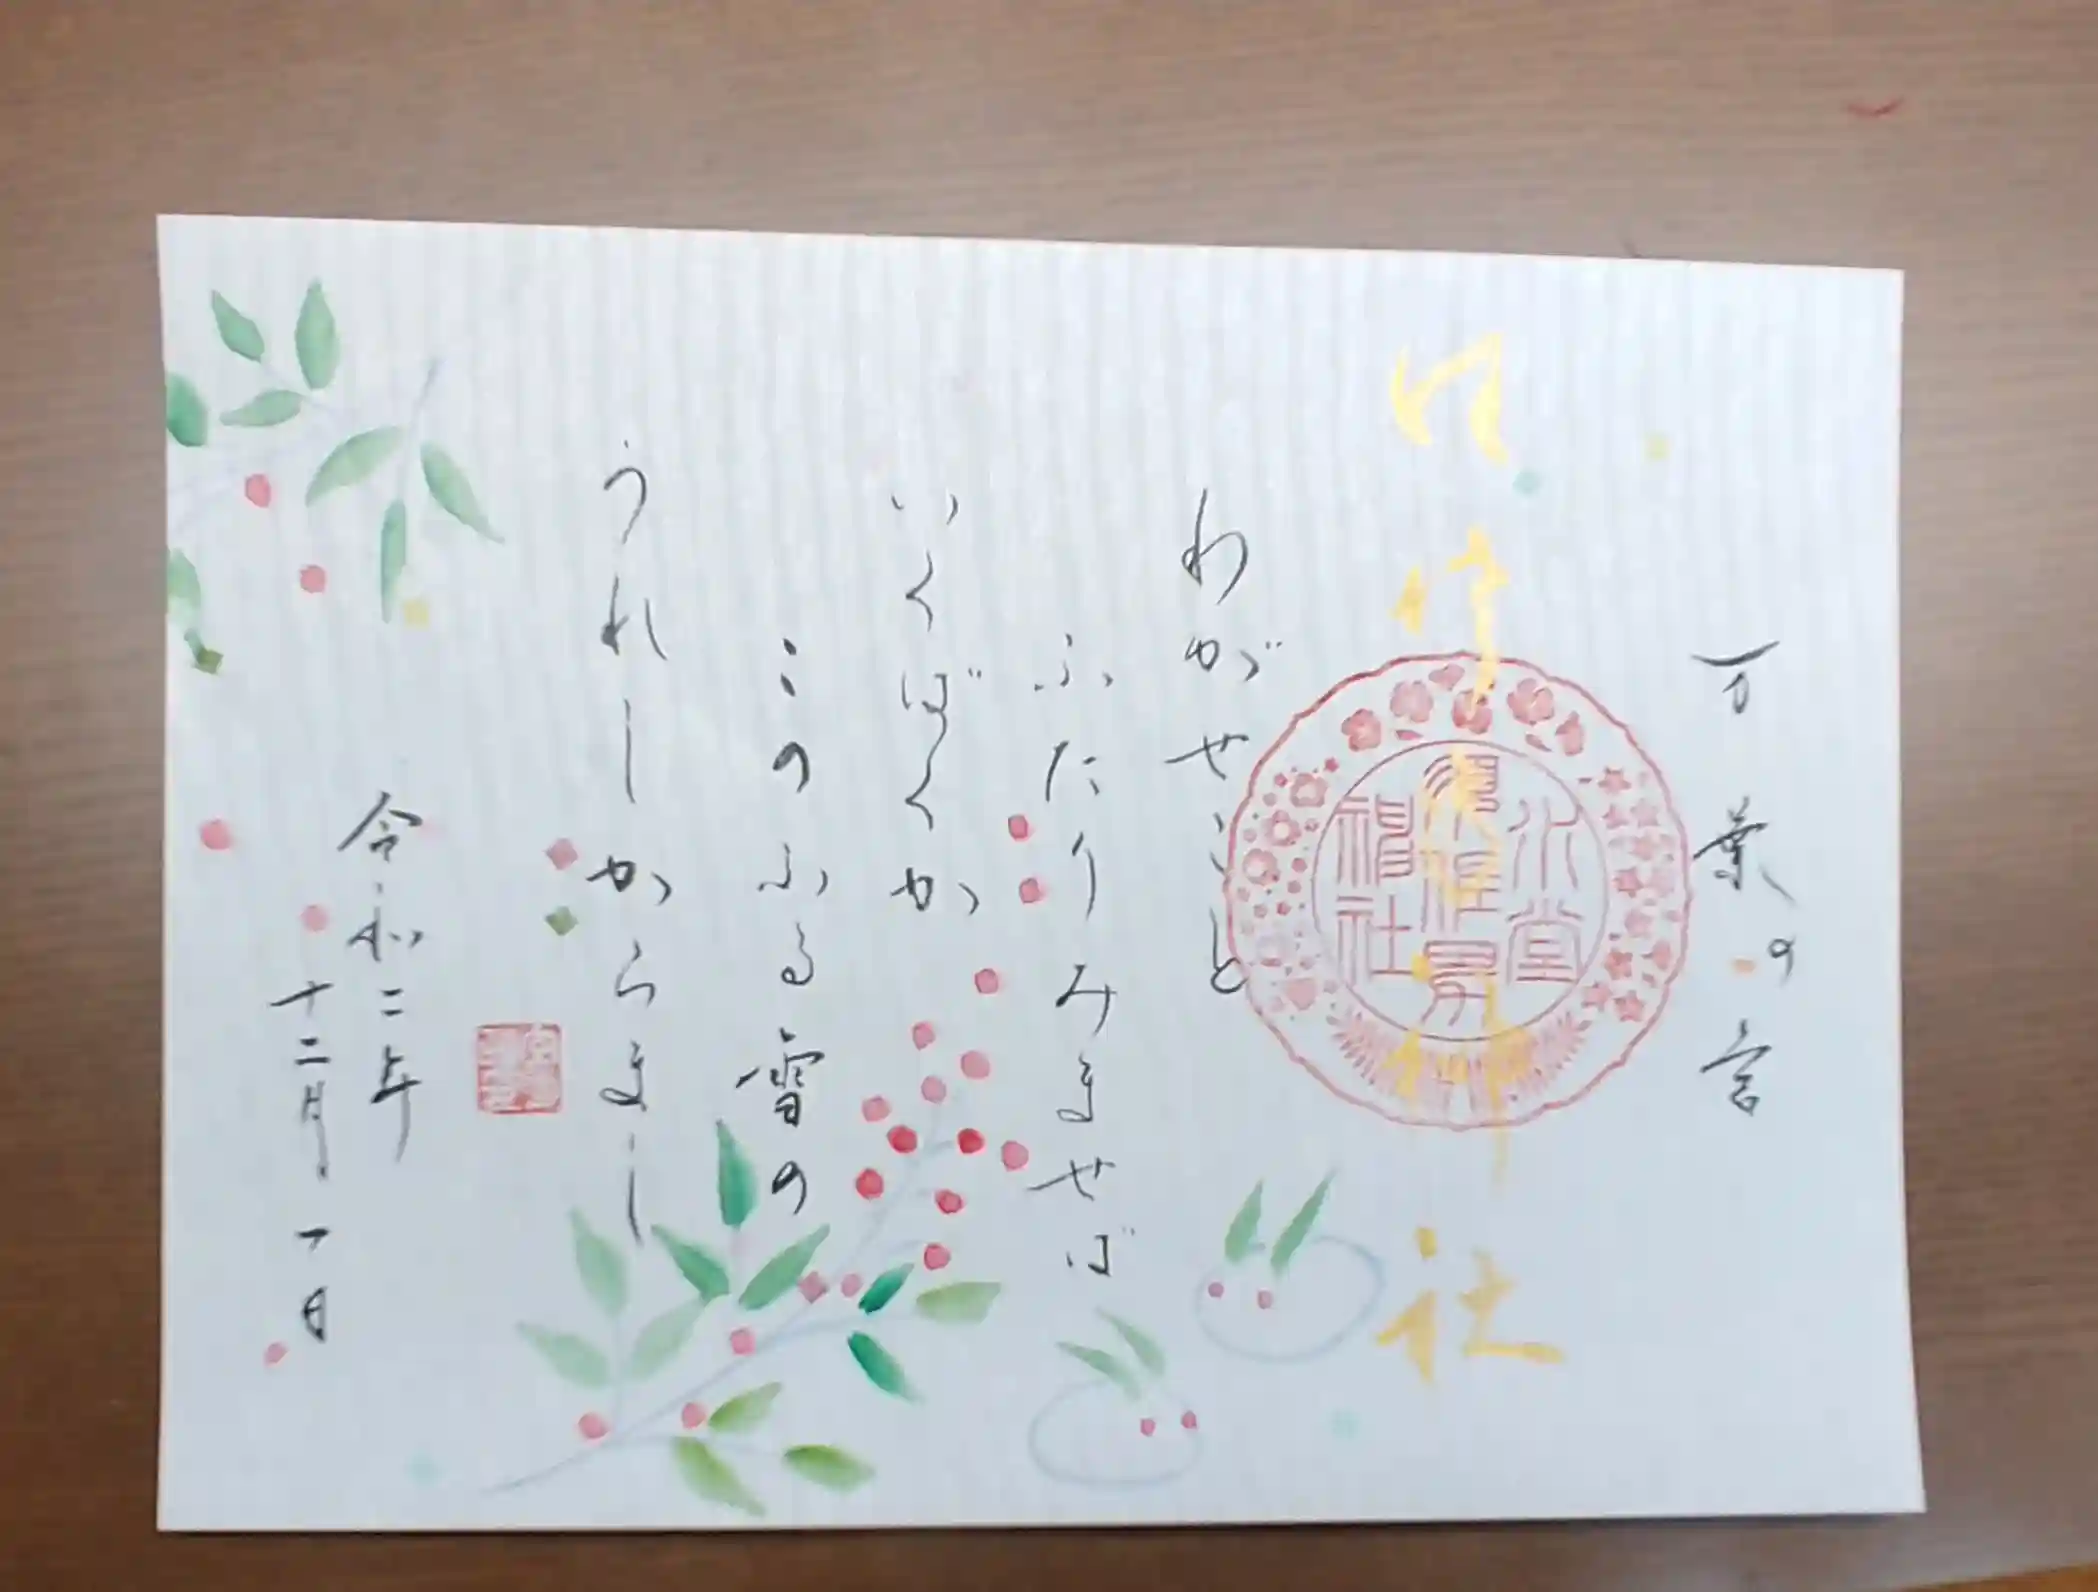 万葉の宮
神社
わがせこと
ふたりみませば
いくばくか
このふる雪の
うれしからまし
令和二年
十二月一日